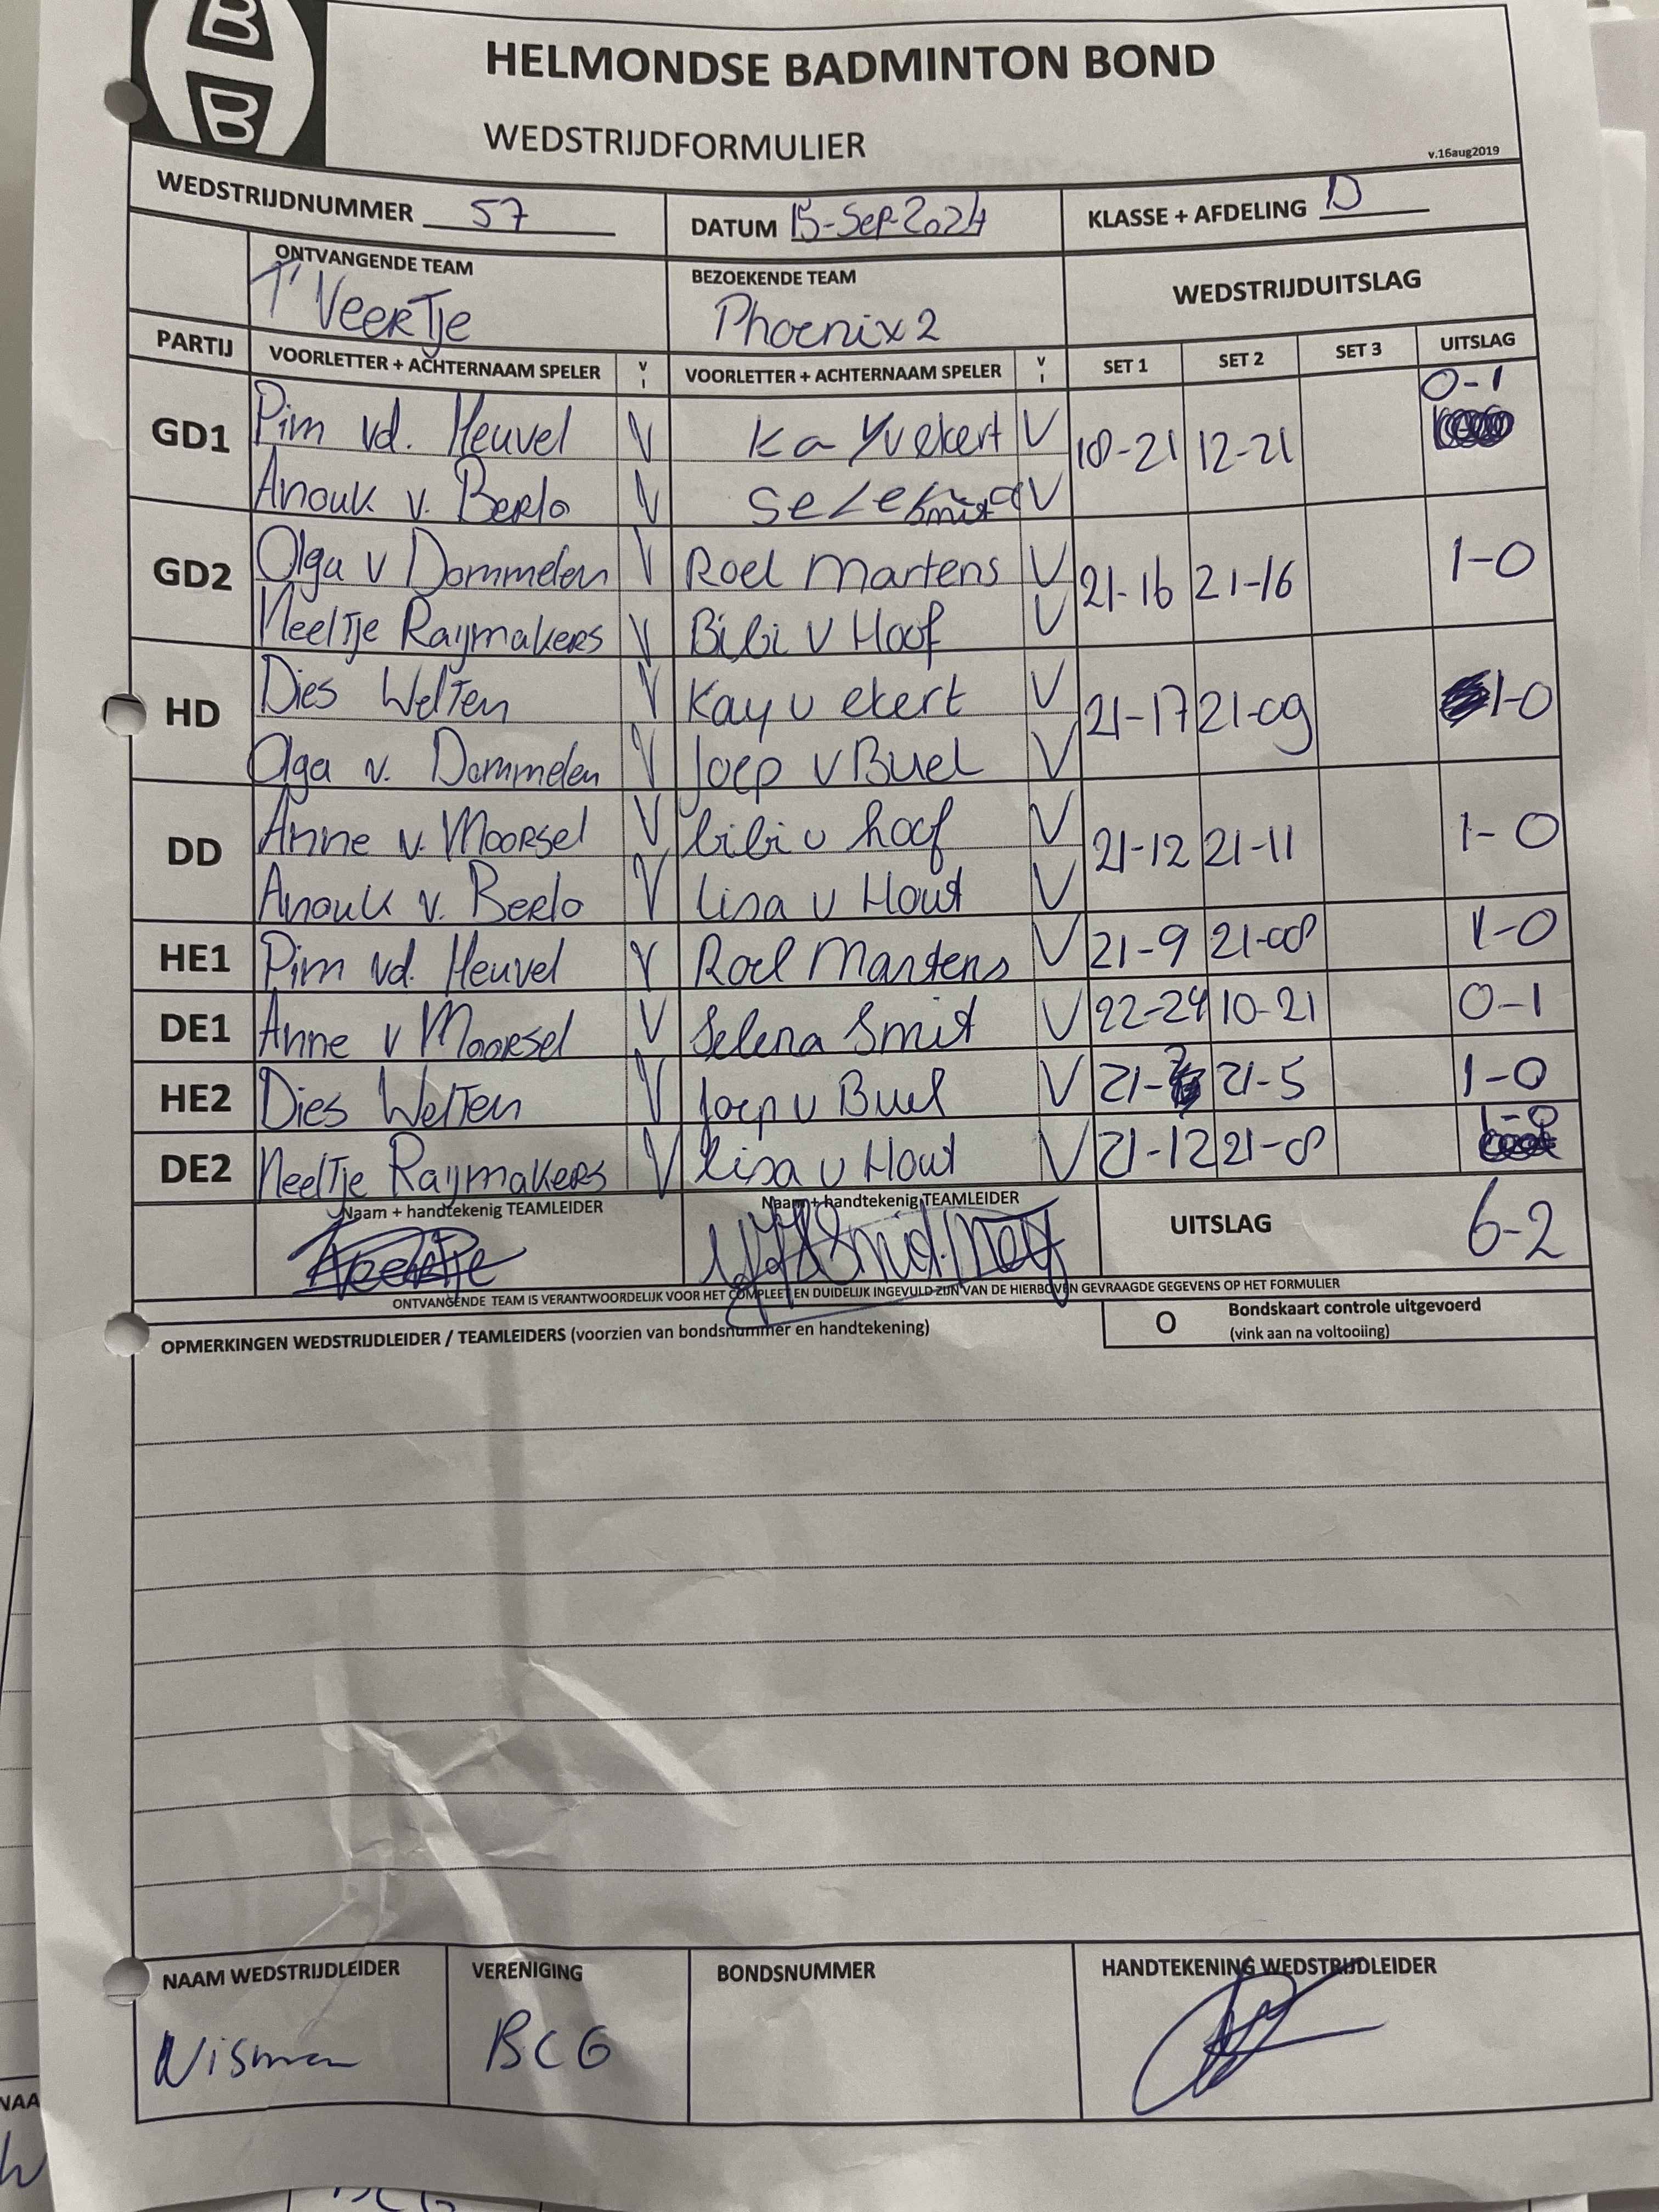 B
B
HELMONDSE BADMINTON BOND
WEDSTRIJDFORMULIER
v.16aug2019
WEDSTRIJDNUMMER 57 DATUM 15-Sep-2024 KLASSE + AFDELING D
ONTVANGENDE TEAM BEZOEKENDE TEAM WEDSTRIJDUITSLAG
T' VeerTje Phoenix 2
PARTIJ VOORLETTER + ACHTERNAAM SPELER V I VOORLETTER + ACHTERNAAM SPELER V I SET 1 SET 2 SET 3 UITSLAG
GD1 Pim vd. Heuvel V Kay v ekert V 18-21 12-21 0-1
Anouk v. Berlo V Smit V
GD2 Olga v Dommelen V Roel Martens V 21-16 21-16 1-0
Neeltje Raijmakers V Bibi v Hoof V
HD Dies Welten V Kay v ekert V 21-17 21-09 1-0
Olga v. Dommelen V Joep v Buel V
DD Anne v. Moorsel V bibi v hoof V 21-12 21-11 1-0
Anouk v. Berlo V lisa v Hout V
HE1 Pim vd. Heuvel V Roel Martens V 21-9 21-08 1-0
DE1 Anne v Moorsel V Selena Smit V 22-24 10-21 0-1
HE2 Dies Welten V Joep v Buel V 21-7 21-5 1-0
DE2 Neeltje Raijmakers V lisa v Hout V 21-12 21-8 1-0
Naam + handtekenig TEAMLEIDER Naam + handtekenig TEAMLEIDER UITSLAG 6-2
ONTVANGENDE TEAM IS VERANTWOORDELIJK VOOR HET COMPLEET EN DUIDELIJK INGEVULD ZIJN VAN DE HIERBOVEN GEVRAAGDE GEGEVENS OP HET FORMULIER
OPMERKINGEN WEDSTRIJDLEIDER / TEAMLEIDERS (voorzien van bondsnummer en handtekening) O Bondskaart controle uitgevoerd
(vink aan na voltooiing)
NAAM WEDSTRIJDLEIDER VERENIGING BONDSNUMMER HANDTEKENING WEDSTRIJDLEIDER
Nisman BCG